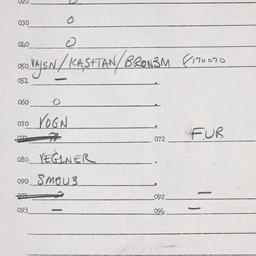 020
030 0
040 0
050 VAJSN/KASHTAN/BRONZM F170070
051 —
060 0
070 VOGN
072 FUR
080 VEGLNER
090 SMOU3
092 —
093 — 094 —